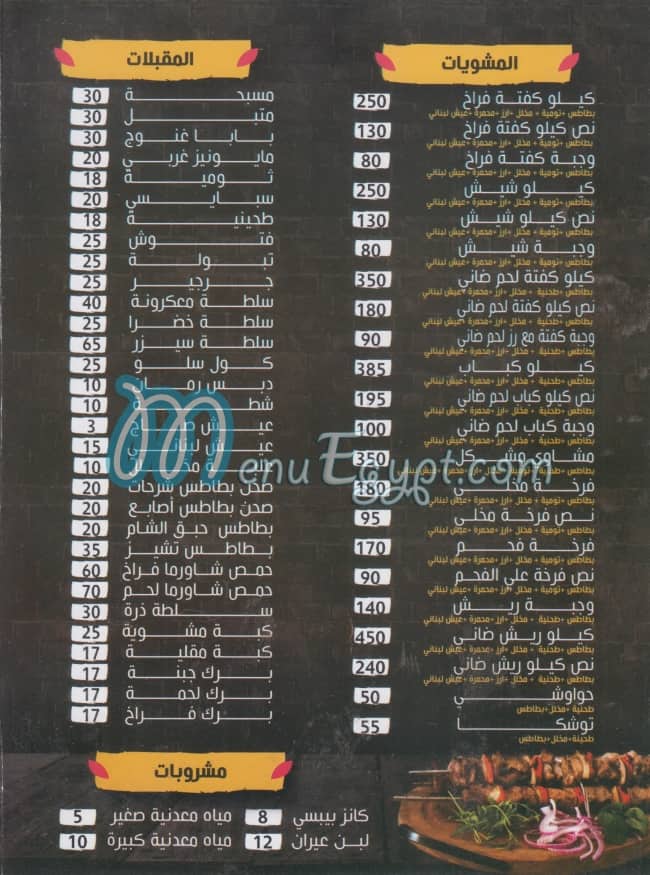 المشويات
كيلو كفتة فراخ 250
بطاطس +تومية + مخلل +ارز +محمرة +عيش لبناني
نص كيلو كفتة فراخ 130
بطاطس +تومية + مخلل +ارز +محمرة +عيش لبناني
وجبة كفتة فراخ 80
بطاطس +تومية + مخلل +ارز +محمرة +عيش لبناني
كيلو شيش 250
بطاطس +تومية + مخلل +ارز +محمرة +عيش لبناني
نص كيلو شيش 130
بطاطس +تومية + مخلل +ارز +محمرة +عيش لبناني
وجبة شيش 80
بطاطس +تومية + مخلل +ارز +محمرة +عيش لبناني
كيلو كفتة لحم ضاني 350
بطاطس +طحنية + مخلل +ارز +محمرة +عيش لبناني
نص كيلو كفتة لحم ضاني 180
بطاطس +طحنية + مخلل +ارز +محمرة +عيش لبناني
وجبة كفتة مع رز لحم ضاني 90
بطاطس +طحنية + مخلل +ارز +محمرة +عيش لبناني
كيلو كباب 385
بطاطس +طحنية + مخلل +ارز +محمرة +عيش لبناني
نص كيلو كباب لحم ضاني 195
بطاطس +طحنية + مخلل +ارز +محمرة +عيش لبناني
وجبة كباب لحم ضاني 100
بطاطس +طحنية + مخلل +ارز +محمرة +عيش لبناني
مشاوي مشكل 350
فرخة مخلي 180
نص فرخة مخلي 95
بطاطس +تومية + مخلل +ارز +محمرة +عيش لبناني
فرخة فحم 170
بطاطس +تومية + مخلل +ارز +محمرة +عيش لبناني
نص فرخة علي الفحم 90
بطاطس +تومية + مخلل +ارز +محمرة +عيش لبناني
وجبة ريش 140
بطاطس +طحنية + مخلل +ارز +محمرة +عيش لبناني
كيلو ريش ضاني 450
بطاطس +طحنية + مخلل +ارز +محمرة +عيش لبناني
نص كيلو ريش ضاني 240
بطاطس +طحنية + مخلل +ارز +محمرة +عيش لبناني
حواوشي 50
طحنية +مخلل+بطاطس
توشكا 55
طحينة+مخلل+بطاطس
المقبلات
مسبحة 30
متبل 30
بابا غنوج 30
مايونيز غربي 20
تومية 18
سبايسي 20
طحينية 18
فتوش 25
تبولة 25
جرجير 25
سلطة معكرونة 40
سلطة خضرا 25
سلطة سيزر 65
كول سلو 25
دبس رمان 10
شطة 10
عيش صاج 3
عيش لبناني 15
علبة مخلل 10
صحن بطاطس شرحات 20
صحن بطاطس أصابع 20
بطاطس حبق الشام 20
بطاطس تشيز 35
حمص شاورما فراخ 60
حمص شاورما لحم 70
سلطة ذرة 30
كبة مشوية 25
كبة مقلية 17
برك جبنة 17
برك لحمة 17
برك فراخ 17
مشروبات
كانز بيبسي 8
مياه معدنية صغير 5
لبن عيران 12
مياه معدنية كبيرة 10
MenuEgypt.com